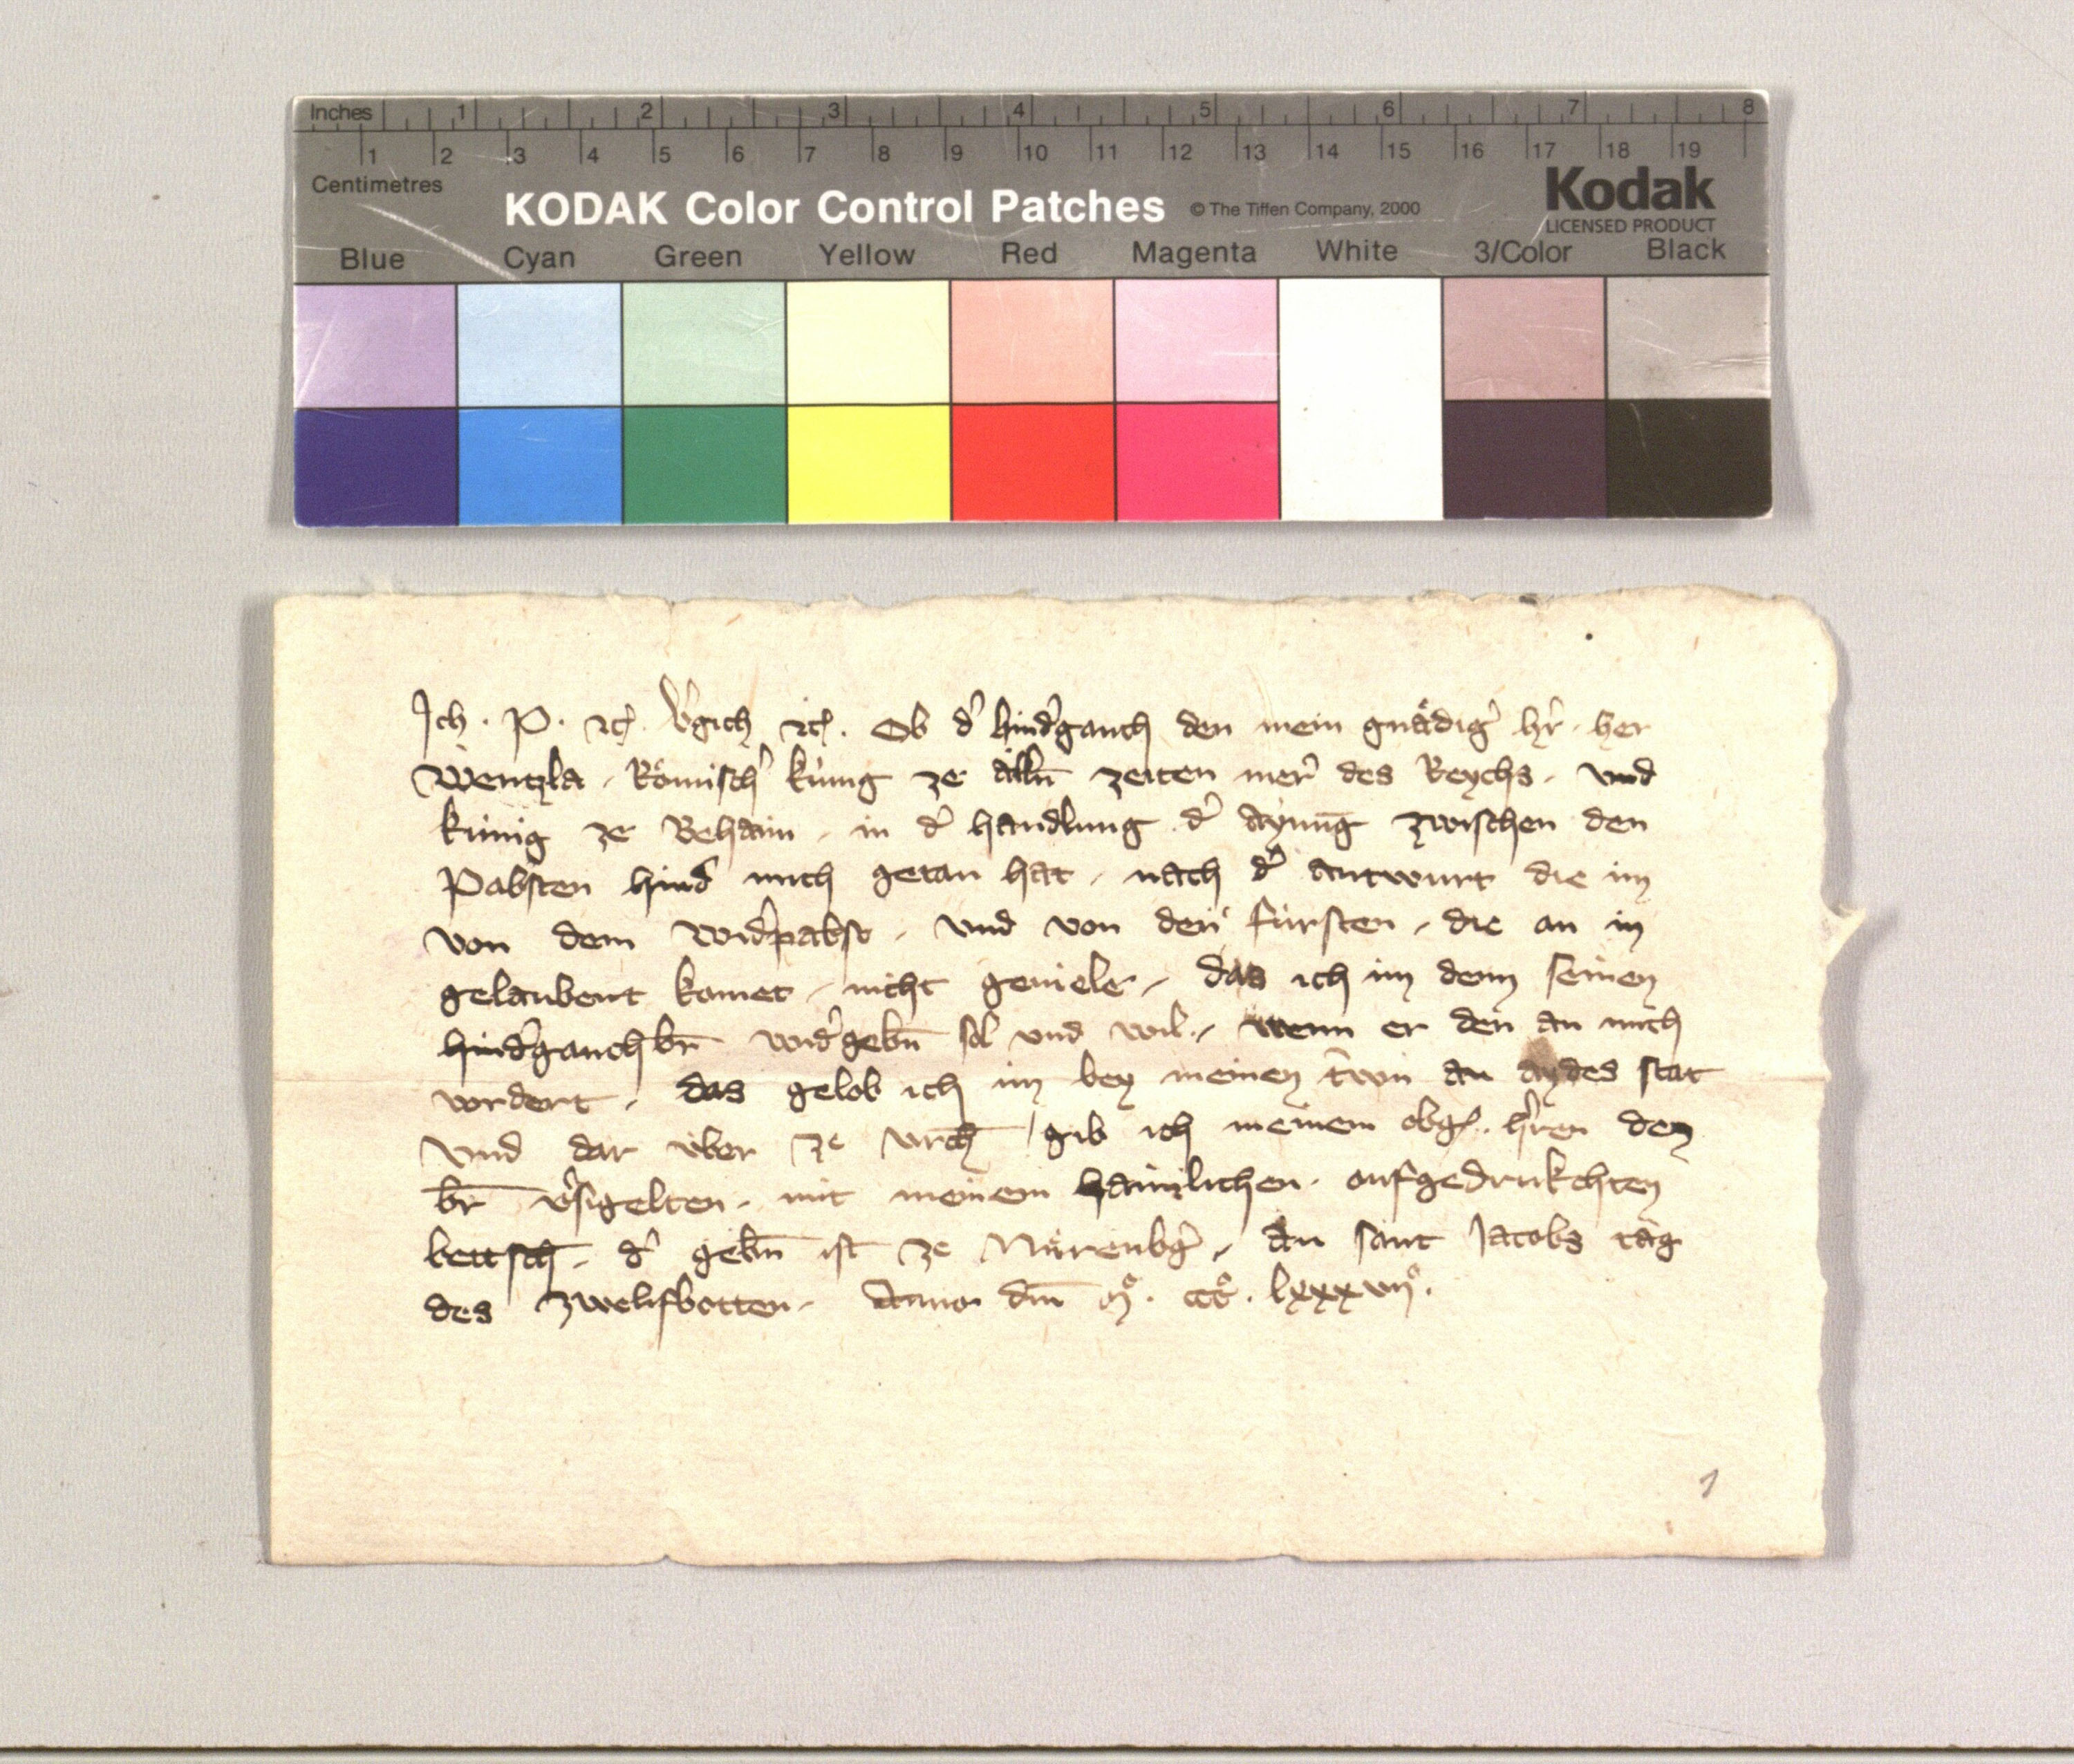 Inches 1 2 3 4 5 6 7 8
1 2 3 4 5 6 7 8 9 10 11 12 13 14 15 16 17 18 19
Centimetres
KODAK Color Control Patches © The Tiffen Company, 2000 Kodak
LICENSED PRODUCT
Blue Cyan Green Yellow Red Magenta White 3/Color Black
Ich . P . etc. v'gich etc. Ob d' hind'ganch den mein gnädig' h'r . her
Wentzla . Römisch' künig ze alln̄ zeiten mer' des Reychs . vnd
künig ze Behaim . in d' handlung d' aynūg zwischen den
Pabsten hind' mich getan hat . nach d' antwurt die im
von dem wid'pabst . vnd von den fürsten . die an in
gelaubent komet . nicht geuiele . das ich im denn seinen
hind'ganch br̄ wid'gebn̄ sol vnd wil . wenn er den an mich
vordert . das gelob ich im bey meinen tr̄wn an aydes stat
vnd dar über ze vrch̄ / gib ich meinem obg. h'ren den
br̄ v'sigelten . mit meinem haimlichen . aufgedrukchten
bettsch̄ . d' gebn̄ ist ze Nürenbg' . an sant Jacobs tag
des zwelifbotten . Anno dm̄ mº . cccº . lxxxvijº .
1